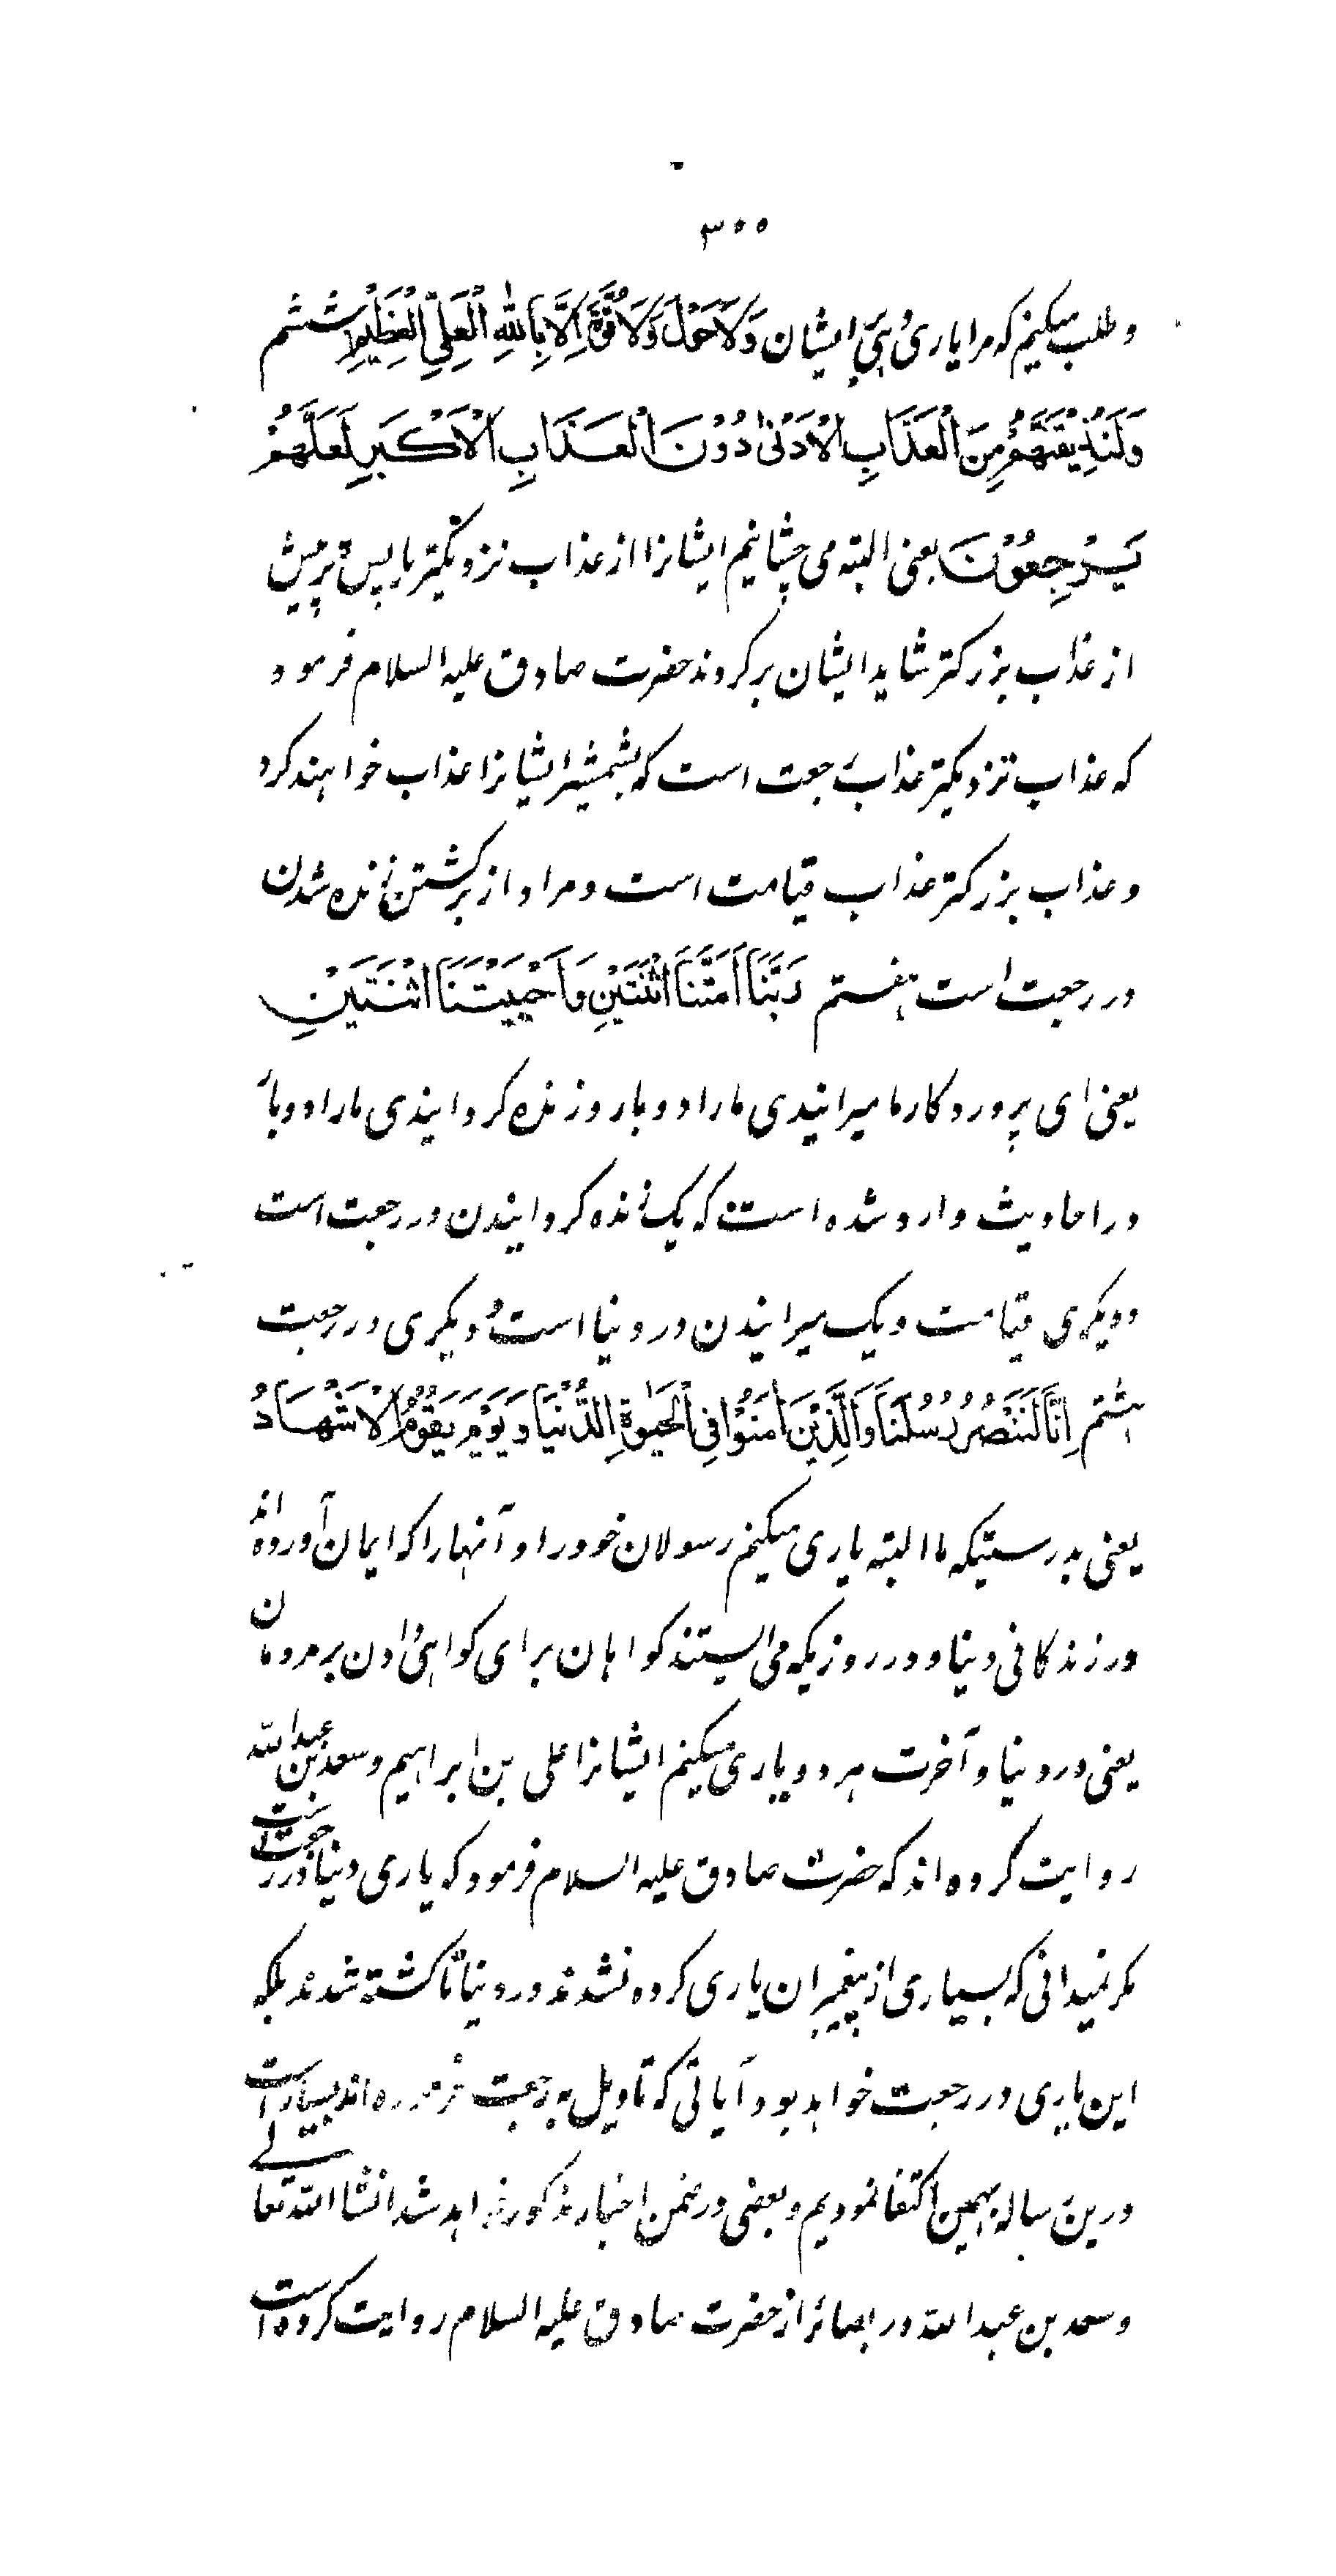 ۳۰۰
و طلب میکنیم که مرا یاری دهی بر ایشان وَلَاحَوْلَ وَلَاقُوَّةَ اِلَّا بِاللهِ الْعَلِیِّ الْعَظِیْمِ ششم
وَلَنُذِیْقَنَّهُمْ مِنَ الْعَذَابِ الْاَدْنٰی دُوْنَ الْعَذَابِ الْاَکْبَرِ لَعَلَّهُمْ
یَرْجِعُوْنَ یعنی البته می چشانیم ایشانرا از عذاب نزدیکتر یا پس تر پیش
از عذاب بزرکتر شاید ایشان برکردند حضرت صادق علیه السلام فرمود
که عذاب نزدیکتر عذاب رجعت است که بشمشیر ایشانرا عذاب خواهند کرد
و عذاب بزرکتر عذاب قیامت است و مراد از برکشتن زنده شدن
در رجعت است هفتم رَبَّنَا اَمَتَّنَا اثْنَتَیْنِ وَاَحْیَیْتَنَا اثْنَتَیْنِ
یعنی ای پروردکار ما میرانیدی ما را دو بار و زنده کردانیدی ما را دو بار
در احادیث وارد شده است که یک زنده کردانیدن در رجعت است
و دیکری قیامت و یک میرانیدن در دنیا است و دیکری در رجعت
هشتم اِنَّا لَنَنْصُرُ رُسُلَنَا وَالَّذِیْنَ اٰمَنُوْا فِی الْحَیٰوةِ الدُّنْیَا وَیَوْمَ یَقُوْمُ الْاَشْهَادُ
یعنی بدرستیکه ما البته یاری میکنیم رسولان خود را و آنها را که ایمان آورده اند
در زندکانی دنیا و در روزیکه می ایستند کواهان برای کواهی دادن بر مردمان
یعنی در دنیا و آخرت هر دو یاری میکنیم ایشانرا علی بن ابراهیم و سعد بن عبد الله
روایت کرده اند که حضرت صادق علیه السلام فرمود که یاری دنیا در رجعت است
مکر نمیدانی که بسیاری از پیغمبران یاری کرده نشدند در دنیا تا کشته شدند بلکه
این یاری در رجعت خواهد بود آیاتی که تاویل به رجعت فرموده اند بسیار است
درین رساله بهمین اکتفا نمودیم و بعضی در ضمن اخبار مذکور خواهد شد انشا الله تعالی
و سعد بن عبد الله در بصائر از حضرت صادق علیه السلام روایت کرده است